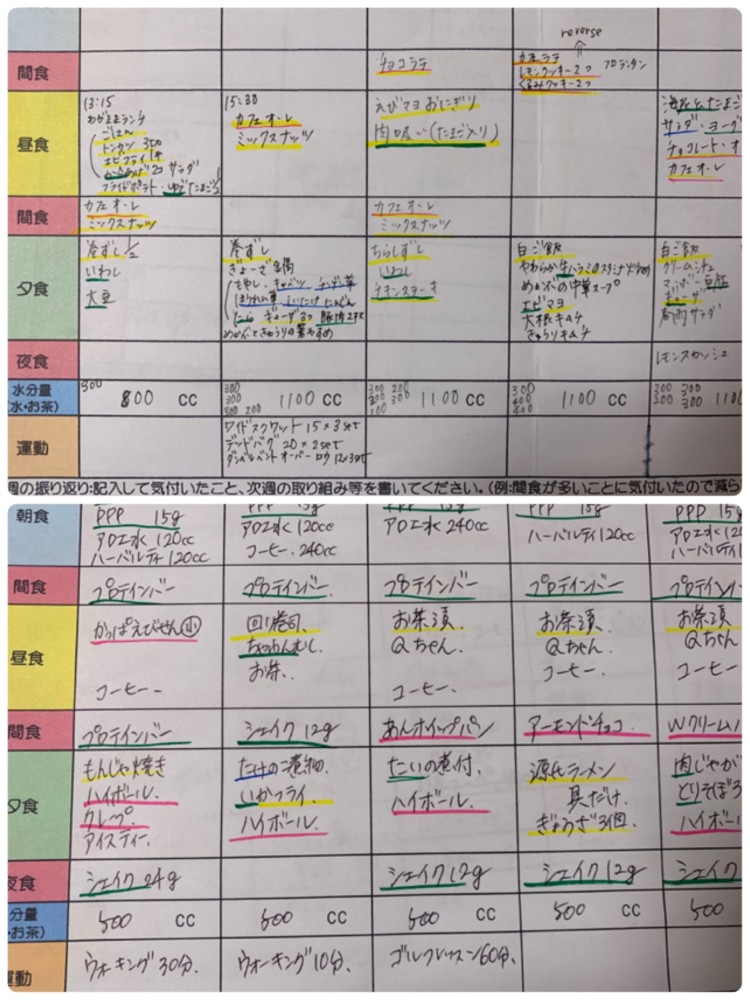 reverse
間食
チョコラテ
カフェラテ
レモンクッキー2つ
フロランタン
くるみクッキー2つ
昼食
13:15
わがままランチ
ごはん
トンカツ
エビフライ
からあげ
サラダ
フライドポテト・ゆでたまご
15:30
カフェオーレ
ミックスナッツ
えびマヨおにぎり
肉吸い(たまご入り)
サラダ・ヨーグ
チョコレート・オ
カフェオーレ
間食
カフェオーレ
ミックスナッツ
カフェオーレ
ミックスナッツ
夕食
巻ずし 1/2
いわし
大豆
巻ずし
ぎょーざ
もやし、キャベツ
ほうれん草 しいたけ にんじん
にら ギョーザ3つ
ちらしずし
いわし
チキンステーキ
白ご飯
やわらか牛ハラミのスタミナ
めかぶの中華スープ
エビマヨ
大根キムチ
きゅうりキムチ
白ご飯
クリームシチュ
マーボー豆腐
ギョーザ
サラダ
夜食
レモンスカッシュ
水分量
(水・お茶)
300
800 cc
300
300
300 200
1100 cc
300 200
300 300
100
1100 cc
300
400
400
1100 cc
300 300
300 300
1100
運動
ワイドスクワット 15×3set
デッドバグ 20×2set
ダンベルベントオーバーロウ 12×3set
週の振り返り:記入して気付いたこと、次週の取り組み等を書いてください。(例:間食が多いことに気付いたので減ら
朝食
PPP 15g
アロエ水 120cc
ハーバルティ 120cc
アロエ水 120cc
コーヒー 240cc
アロエ水 240cc
ハーバルティ 120cc
PPP 15g
アロエ水 120cc
ハーバルティ
間食
プロテインバー
プロテインバー
プロテインバー
プロテインバー
プロテインバー
昼食
かっぱえびせん小
コーヒー
回り寿司、
ちゃわんむし
お茶、
お茶漬、
Qちゃん、
コーヒー、
お茶漬、
Qちゃん、
コーヒー、
お茶漬、
Qちゃん、
コーヒー
間食
プロテインバー
シェイク 12g
あんホイップパン
アーモンドチョコ
Wクリーム
夕食
もんじゃ焼き
ハイボール、
クレープ
アイスティー、
たけのこ煮物、
いかフライ
ハイボール、
たいの煮付、
ハイボール、
源氏ラーメン
具だけ、
ぎょうざ3個、
肉じゃが
とりそぼろ
ハイボー
夜食
シェイク 24g
シェイク 12g
シェイク 12g
シェイク
分量
・お茶)
500 cc
600 cc
600 cc
500 cc
500
運動
ウォーキング30分、
ウォーキング10分、
ゴルフレッスン60分、